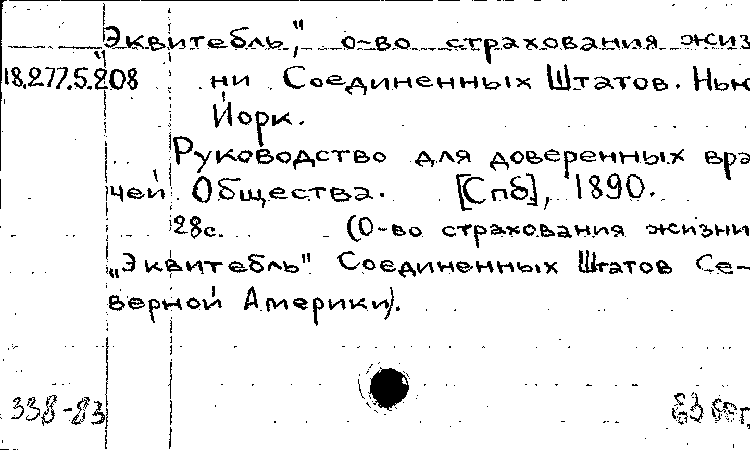 "Эквитебль," о-во страхования жиз
18.277.5.208 ни Соединенных Штатов. Нью
Йорк.
Руководство для доверенных вра
чей Общества. [Спб], 1890.
28с. (О-во страхования жизни
„Эквитебль" Соединенных Штатов Се-
верной Америки).
338-83